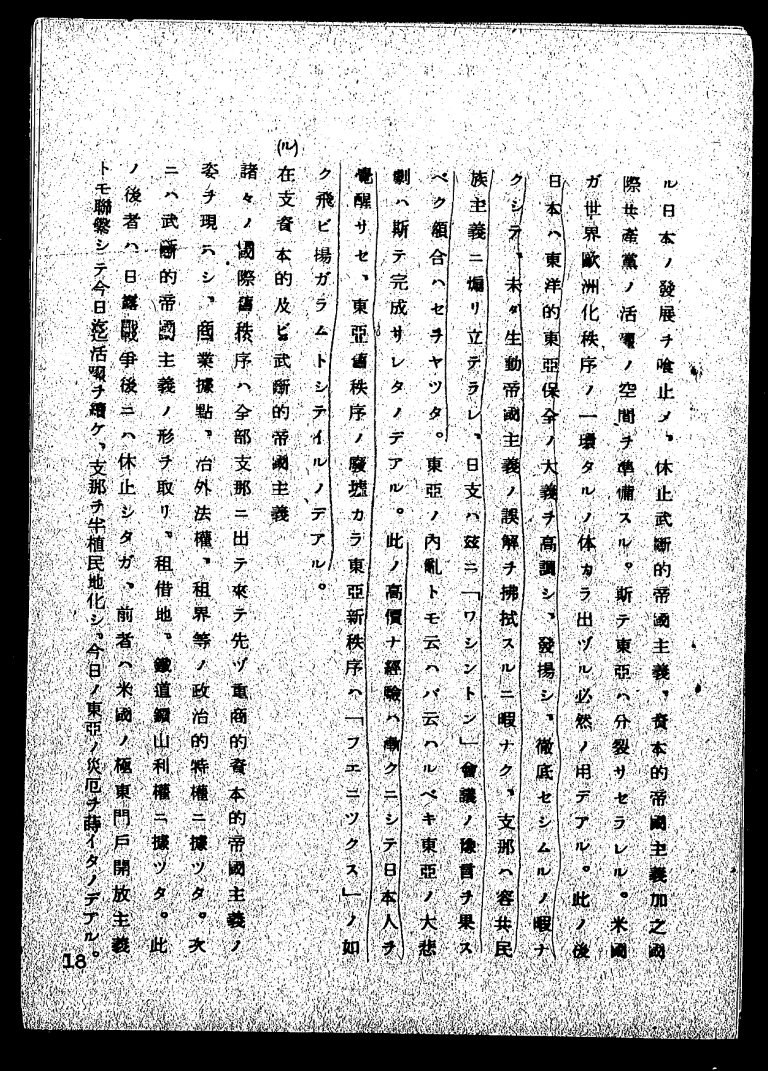 ル日本ノ發展ヲ喰止メ、休止武斷的帝國主義、資本的帝國主義加之國
際共產黨ノ活躍ノ空間ヲ準備スル。斯テ東亞ハ分裂サセラレル。米國
ガ世界歐洲化秩序ノ一環タルノ体カラ出ヅル必然ノ用デアル。此ノ後
日本ハ東洋的東亞保全ノ大義ヲ高調シ、發揚シ、徹底セシムルノ暇ナ
クシテ、未ダ生動帝國主義ノ誤解ヲ拂拭スルニ暇ナク、支那ハ容共民
族主義ニ煽リ立テラレ、日支ハ玆ニ「ワシントン」會議ノ豫言ヲ果ス
ベク額合ハセヲヤツタ。東亞ノ內亂トモ云ハバ云ハルベキ東亞ノ大悲
劇ハ斯テ完成サレタノデアル。此ノ高價ナ經驗ハ漸クニシテ日本人ヲ
覺醒サセ、東亞舊秩序ノ廢墟カラ東亞新秩序ヘ「フエニツクス」ノ如
ク飛ビ揚ガラムトシテイルノデアル。
(ル)在支資本的及ビ武斷的帝國主義
諸々ノ國際舊秩序ハ全部支那ニ出テ來テ先ヅ重商的資本的帝國主義ノ
姿ヲ現ハシ、商業據點、治外法權、租界等ノ政治的特權ニ據ツタ。次
ニハ武斷的帝國主義ノ形ヲ取リ、租借地、鐵道鑛山利權ニ據ツタ。此
ノ後者ハ日露戰爭後ニハ休止シタガ、前者ハ米國ノ極東門戶開放主義
トモ聯繫シテ今日迄活躍ヲ續ケ、支那ヲ半植民地化シ、今日ノ東亞ノ災厄ヲ蒔イタノデアル。
18